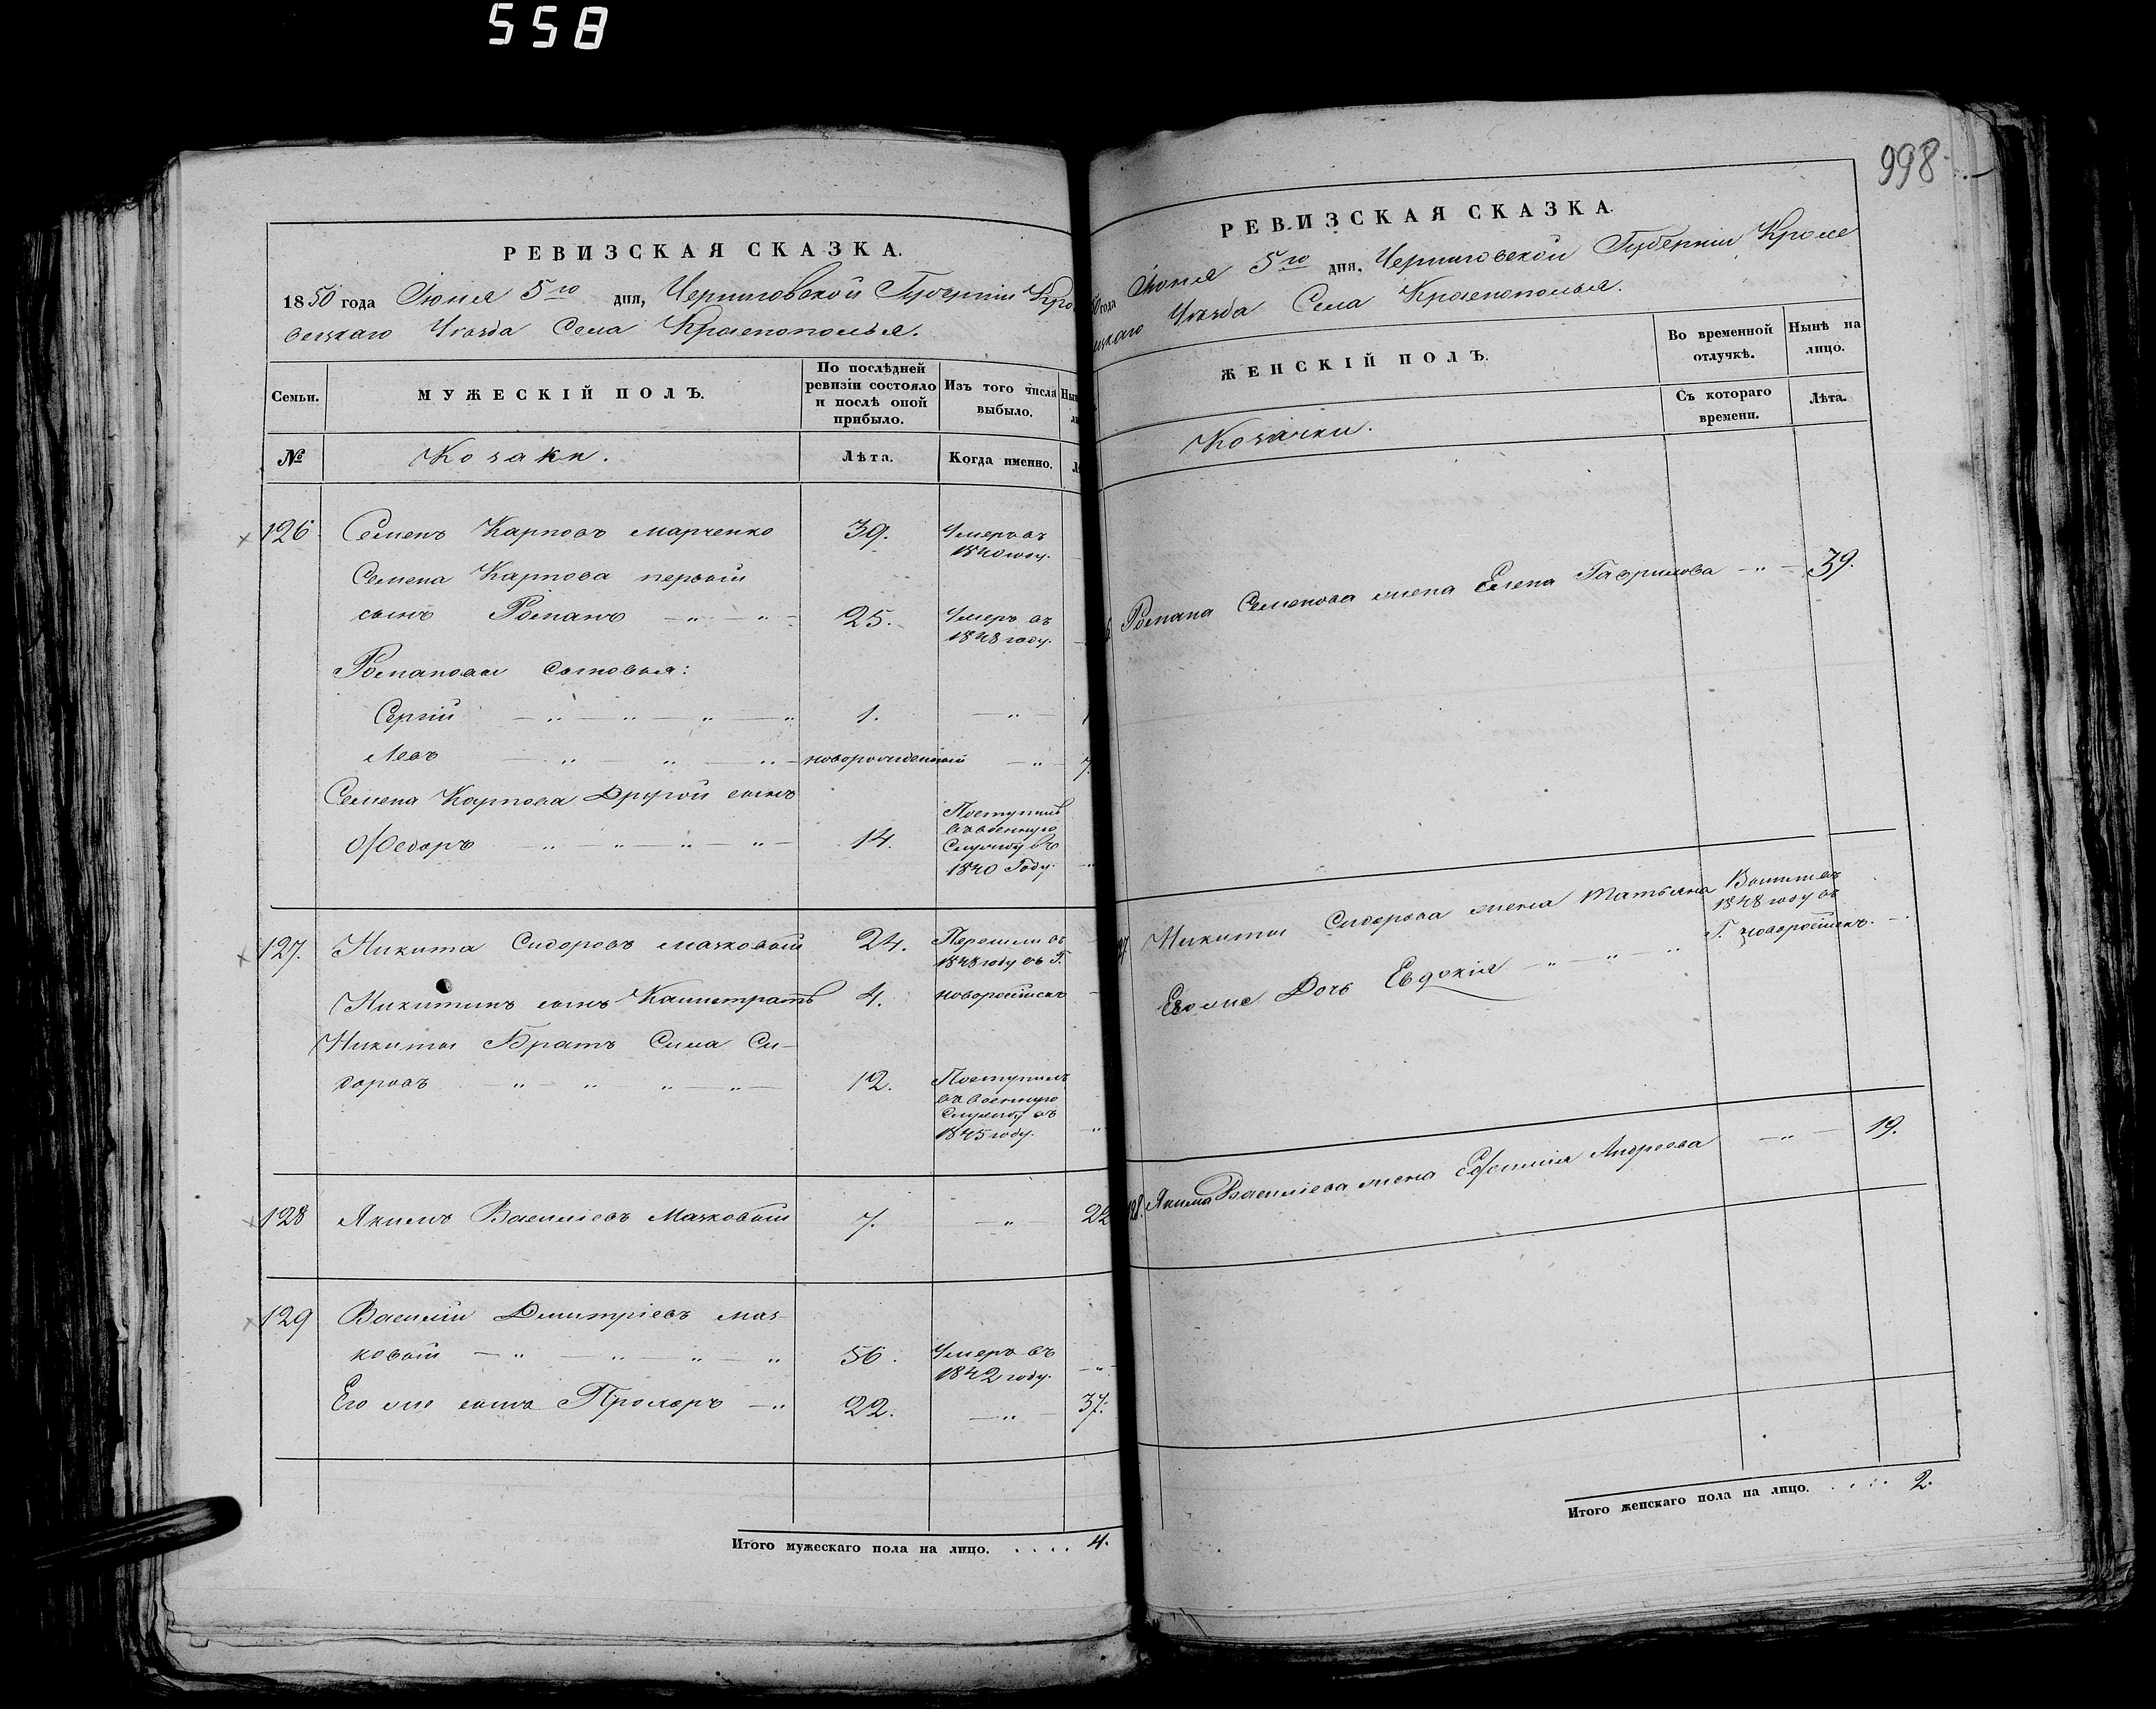 558
РЕВИЗСКАЯ СКАЗКА.
1850 года Іюня 5го дня, Черниговской Губерніи Кро
вецкаго Уѣзда Села Краснополья.
Семьи.
МУЖЕСКІЙ ПОЛЪ.
По послѣдней ревизіи состояло и послѣ оной прибыло.
Изъ того числа выбыло.
№
Козаки.
Лѣта.
Когда именно.
126 Семенъ Карповъ Марченко 39. Умеръ въ
1840 году.
Семена Карпова первый
сынъ Романъ — " — " — 25. Умеръ въ
1848 году.
Романовы Сыновья:
Сергій — " — " — " — " 1. — " —
Левъ — " — " — " — новорожденный — " — 7.
Семена Карпова Другой сынъ
Ѳедоръ — " — " — " — " — 14. Поступилъ
въ военную
Службу въ
1840 Году.
127. Никита Сидоровъ Мачковый 24. Перешли въ
1848 году въ Г.
Никитинъ сынъ Калистратъ 4. новороссійскъ
Никиты Братъ Сила Си-
доровъ — " — " — " — " — 12. Поступилъ
въ военную
Службу въ
1845 году.
128 Якимъ Василіевъ Мачковый 7. — " — 22
129 Василій Димитріевъ Мач-
ковый — " — " — " — " 56. Умеръ въ
1842 году.
Его же сынъ Прохоръ — " 22. — " — 37.
Итого мужескаго пола на лицо. . . . . 4.
998
РЕВИЗСКАЯ СКАЗКА.
50 года Іюня 5го дня, Черниговской Губерніи Кроле
вецкаго Уѣзда Села Краснополья.
ЖЕНСКІЙ ПОЛЪ.
Во временной отлучкѣ.
Нынѣ на лицо.
Козачки.
Съ котораго времени.
Лѣта.
Романа Семенова жена Елена Гаврилова — " — 39.
27. Никиты Сидорова жена Татьяна
1848 году въ
Г. новороссійскъ.
Его же Дочь Евдокія — " — " — "
128. Якима Василіева жена Ефимія Андреева — " — 19.
Итого женскаго пола на лицо. . . . . 2.